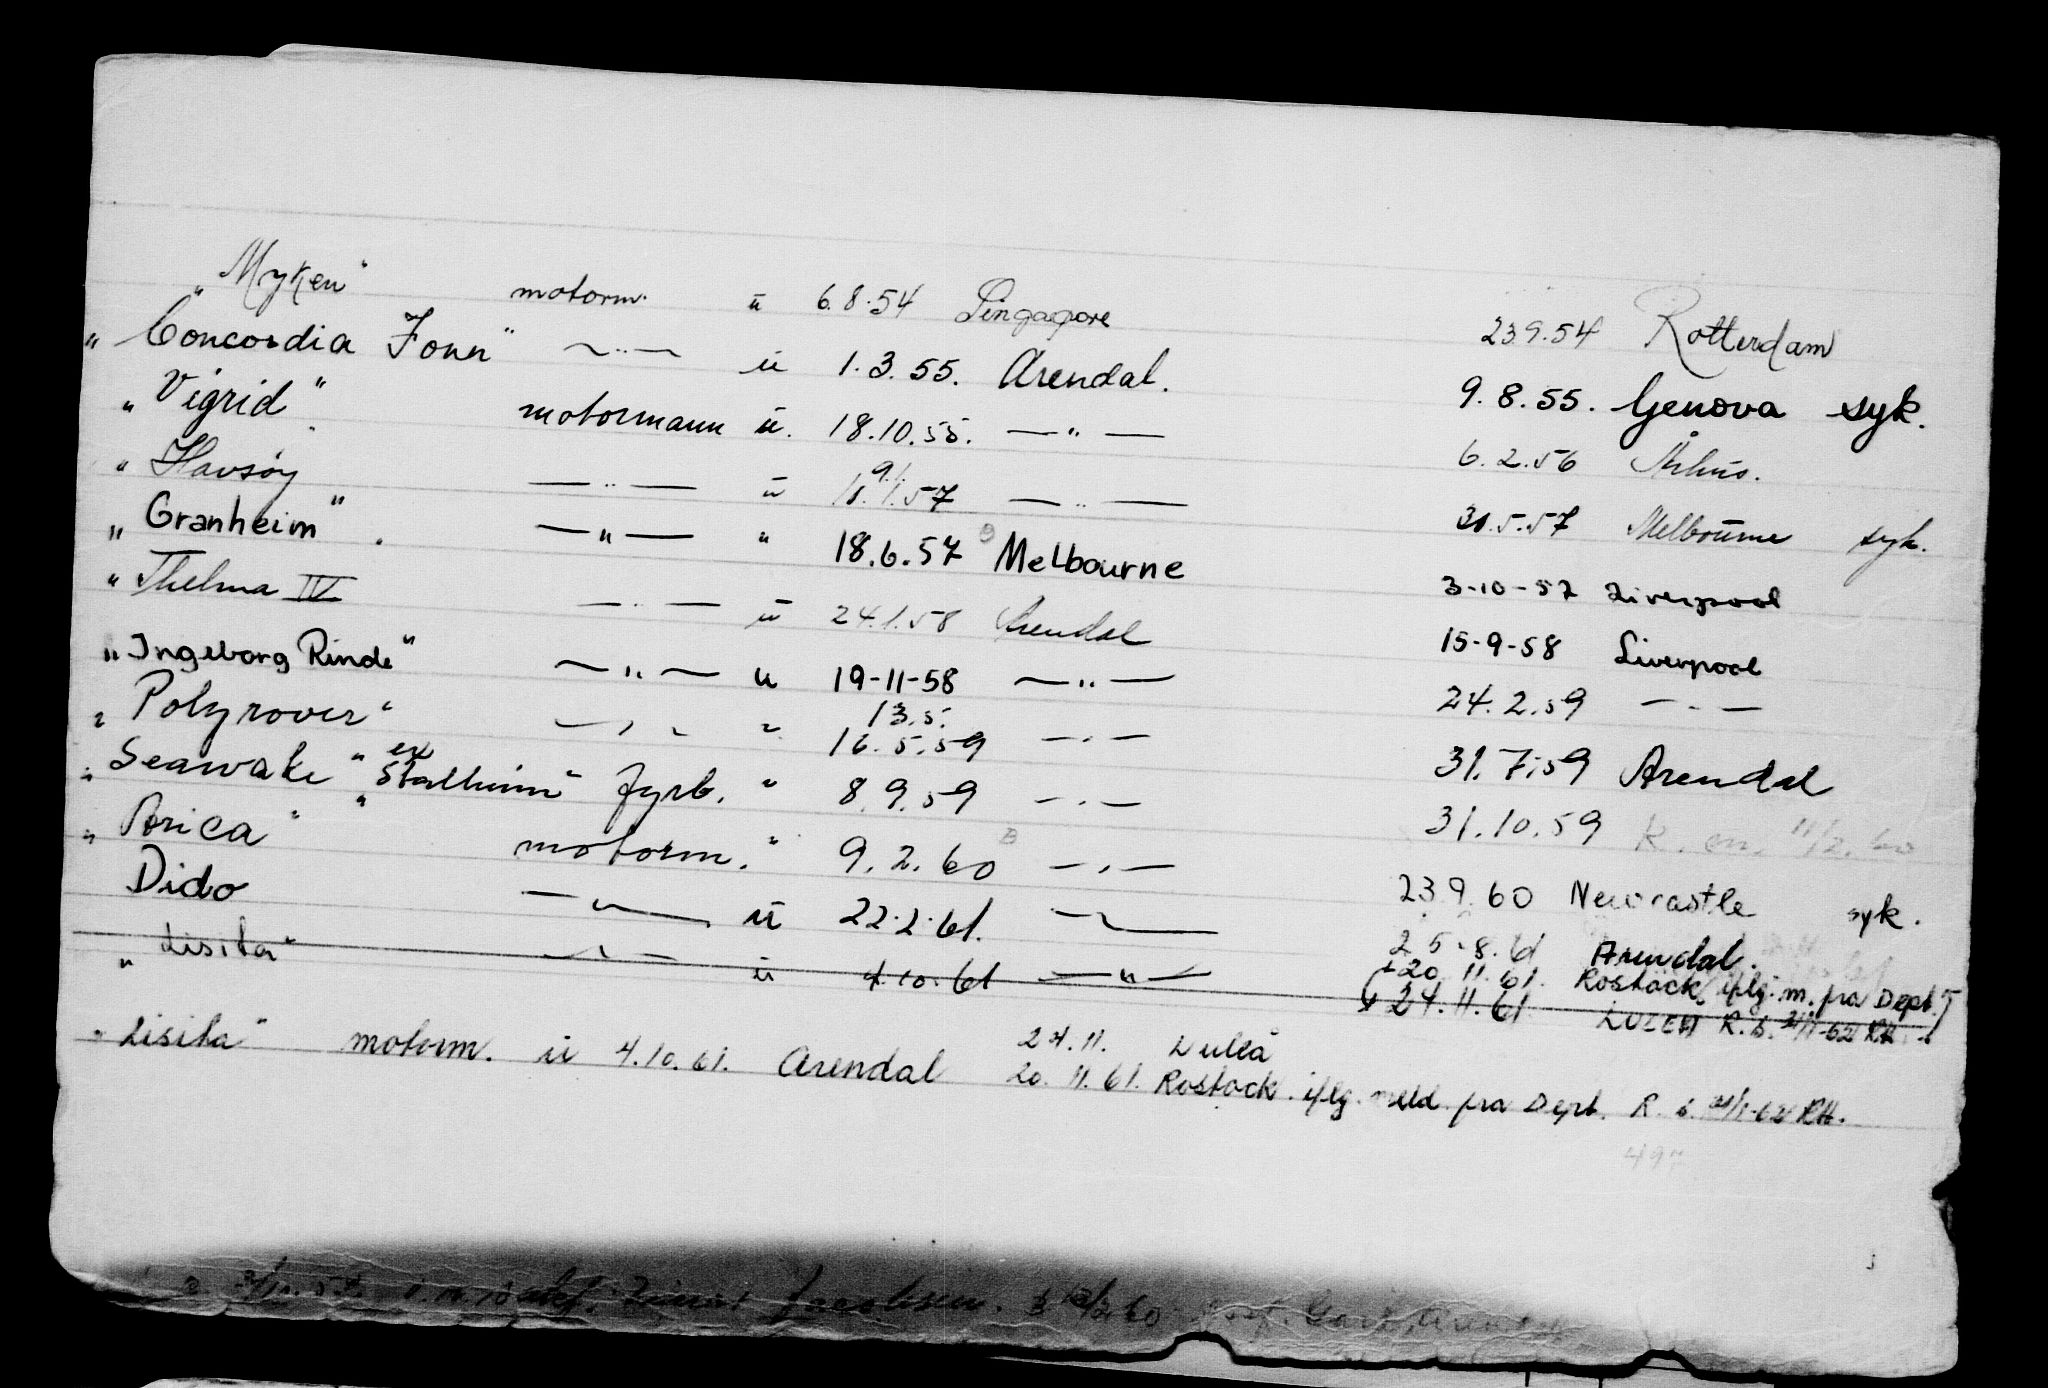 "Myken" motorm. u 6.8.54 Singapore 23.9.54 Rotterdam
"Concordia Fonn" —"— u 1.3.55. Arendal. 9.8.55. Genova syk.
"Vigrid" motormann u. 18.10.55. —"— 6.2.56 Århus.
"Havsøy" —"— u 11.1.57 9/1. —"— 31.5.57 Melbourne syk.
"Granheim". —"— " 18.6.57 Melbourne 3-10-57 Liverpool
"Thelma IV —"— u 24.1.58 Arendal 15-9-58 Liverpool
"Ingeborg Rinde" —"— u 19-11-58 —"— 24.2.59 —"—
13.5.
"Polyrover" —"— " 16.5.59 —"— 31.7.59 Arendal
"Seawake" ex "Stalheim" fyrb. " 8.9.59 —"— 31.10.59 K. en. 11/2.60
"Arica" motorm. " 9.2.60 —"— 23.9.60 Newcastle syk.
Dido —"— u 22.2.61. —"— 25.8.61 Arendal.
"Lisita" —"— u 4.10.61 —"— 20.11.61. Rostock iflg. m. fra Dept.
24.11.61 R.s. -62 RH
24.11. Luleå
"Lisita" motorm. u 4.10.61. Arendal 20.11.61. Rostock. iflg. meld. fra Dept. R.s. -62 RH.
497
Jacobsen. 12/2 60